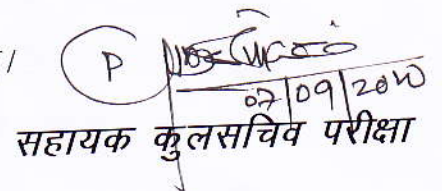 P
07/09/2010
सहायक कुलसचिव परीक्षा